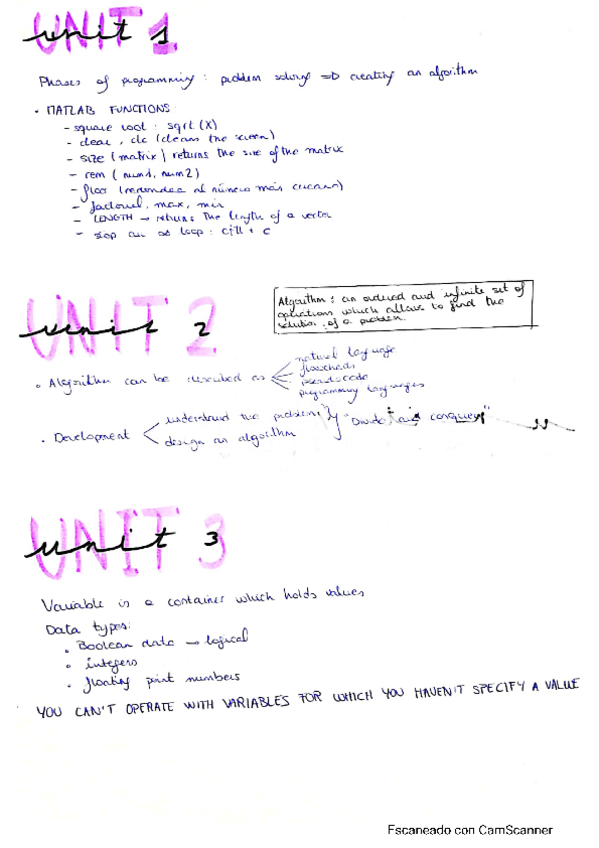 UNIT 1
Phases of programming: problem solving => creating an algorithm
• MATLAB FUNCTIONS:
- square root: sqrt (X)
- clear, clc (cleans the screen)
- size (matrix) returns the size of the matrix
- rem (num1, num2)
- floor (redondea al número más cercano)
- factorial, max, min
- LENGTH → returns the length of a vector
- stop an ∞ loop: ctrl + c
UNIT 2
Algorithm: an ordered and infinite set of
operations which allows to find the
solution of a problem.
• Algorithm can be described as
natural language
flowcharts
pseudocode
programming languages
• Development
understand the problem
design an algorithm
"Divide and conquer"
UNIT 3
Variable is a container which holds values
Data types:
• Boolean data → logical
• integers
• floating point numbers
YOU CAN'T OPERATE WITH VARIABLES FOR WHICH YOU HAVEN'T SPECIFY A VALUE
Escaneado con CamScanner